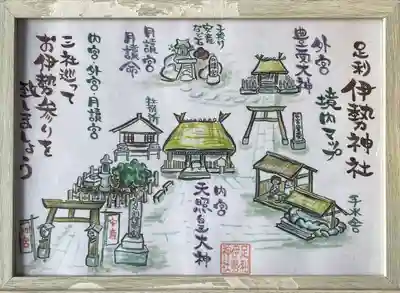 足利伊勢神社
境内マップ
外宮
豊受大神
子授り
安産
なで石
月讀宮
月讀命
内宮 外宮 月讀宮
三社巡って
お伊勢参りを
致しましょう
社務所
内宮
天照皇大神
手水舎